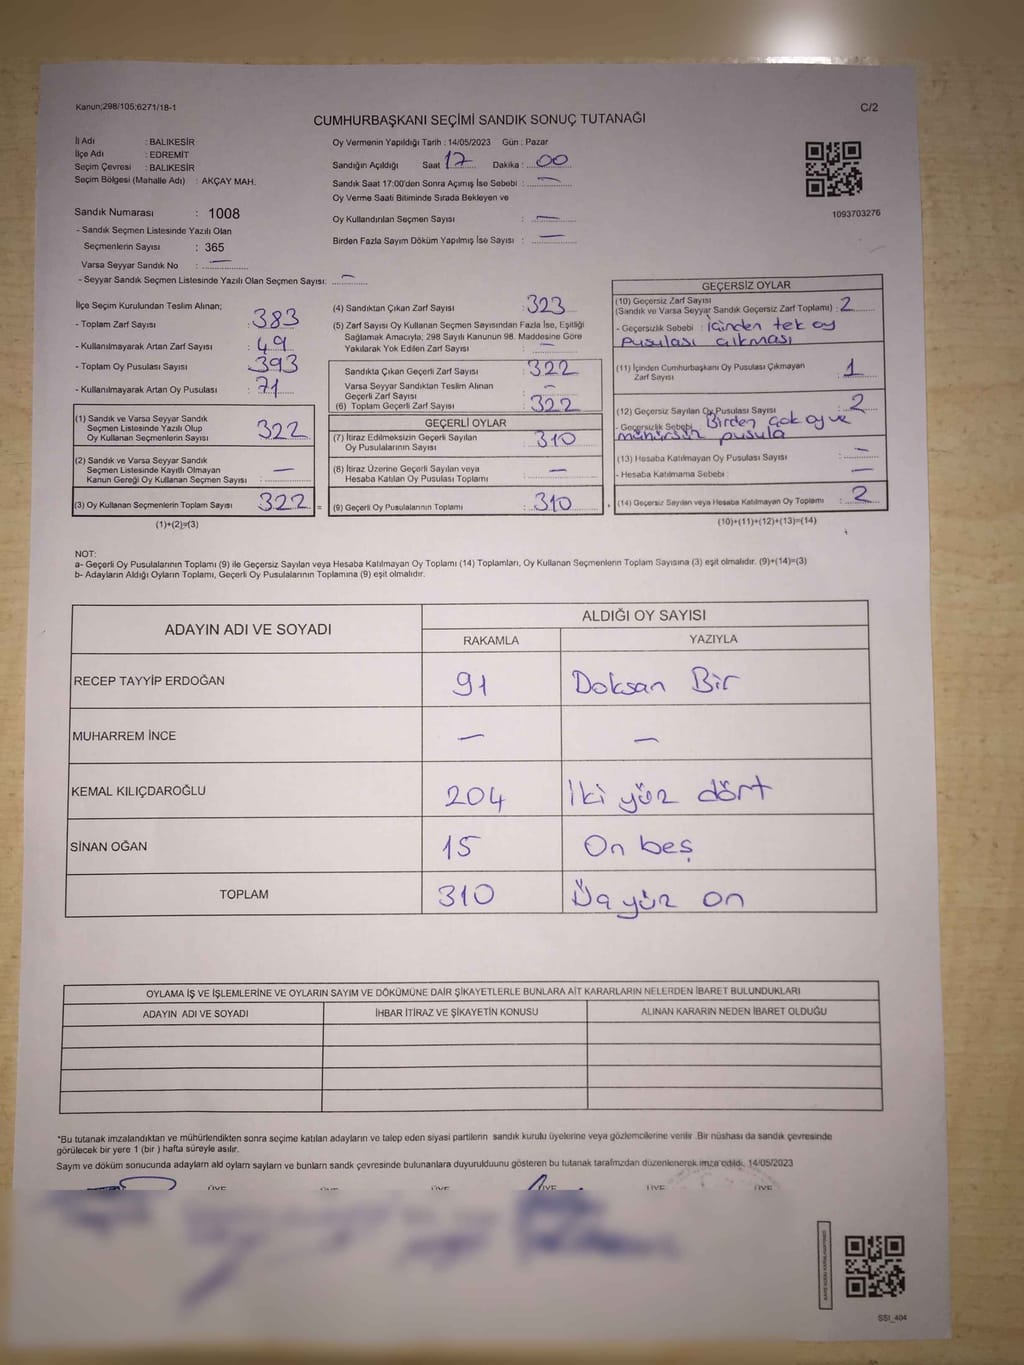 Kanun;298/105;6271/18-1
C/2
CUMHURBAŞKANI SEÇİMİ SANDIK SONUÇ TUTANAĞI
İl Adı : BALIKESİR
İlçe Adı : EDREMİT
Seçim Çevresi : BALIKESİR
Seçim Bölgesi (Mahalle Adı) : AKÇAY MAH.
Sandık Numarası : 1008
- Sandık Seçmen Listesinde Yazılı Olan
Seçmenlerin Sayısı : 365
Varsa Seyyar Sandık No : —
- Seyyar Sandık Seçmen Listesinde Yazılı Olan Seçmen Sayısı: —
Oy Vermenin Yapıldığı Tarih : 14/05/2023 Gün : Pazar
Sandığın Açıldığı Saat 17 Dakika : 00
Sandık Saat 17:00'den Sonra Açımış İse Sebebi : —
Oy Verme Saati Bitiminde Sırada Bekleyen ve
Oy Kullandırılan Seçmen Sayısı : —
Birden Fazla Sayım Döküm Yapılmış İse Sayısı : —
1093703276
İlçe Seçim Kurulundan Teslim Alınan;
- Toplam Zarf Sayısı : 383
- Kullanılmayarak Artan Zarf Sayısı : 49
- Toplam Oy Pusulası Sayısı : 393
- Kullanılmayarak Artan Oy Pusulası : 71
(1) Sandık ve Varsa Seyyar Sandık
Seçmen Listesinde Yazılı Olup
Oy Kullanan Seçmenlerin Sayısı 322
(2) Sandık ve Varsa Seyyar Sandık
Seçmen Listesinde Kayıtlı Olmayan
Kanun Gereği Oy Kullanan Seçmen Sayısı : —
(3) Oy Kullanan Seçmenlerin Toplam Sayısı 322 =
(1)+(2)=(3)
(4) Sandıktan Çıkan Zarf Sayısı : 323
(5) Zarf Sayısı Oy Kullanan Seçmen Sayısından Fazla İse, Eşitliği
Sağlamak Amacıyla; 298 Sayılı Kanunun 98. Maddesine Göre
Yakılarak Yok Edilen Zarf Sayısı : —
Sandıkta Çıkan Geçerli Zarf Sayısı : 322
Varsa Seyyar Sandıktan Teslim Alınan
Geçerli Zarf Sayısı : —
(6) Toplam Geçerli Zarf Sayısı : 322
GEÇERLİ OYLAR
(7) İtiraz Edilmeksizin Geçerli Sayılan
Oy Pusulalarının Sayısı : 310
(8) İtiraz Üzerine Geçerli Sayılan veya
Hesaba Katılan Oy Pusulası Toplamı : —
(9) Geçerli Oy Pusulalarının Toplamı : 310 +
GEÇERSİZ OYLAR
(10) Geçersiz Zarf Sayısı
(Sandık ve Varsa Seyyar Sandık Geçersiz Zarf Toplamı) : 2
- Geçersizlik Sebebi : İçinden tek oy
pusulası çıkması
(11) İçinden Cumhurbaşkanı Oy Pusulası Çıkmayan
Zarf Sayısı : 1
(12) Geçersiz Sayılan Oy Pusulası Sayısı : 2
- Geçersizlik Sebebi : Birden çok oy ve
mühürsüz pusula
(13) Hesaba Katılmayan Oy Pusulası Sayısı : —
- Hesaba Katılmama Sebebi : —
(14) Geçersiz Sayılan veya Hesaba Katılmayan Oy Toplamı : 2
(10)+(11)+(12)+(13)=(14)
NOT:
a- Geçerli Oy Pusulalarının Toplamı (9) ile Geçersiz Sayılan veya Hesaba Katılmayan Oy Toplamı (14) Toplamları, Oy Kullanan Seçmenlerin Toplam Sayısına (3) eşit olmalıdır. (9)+(14)=(3)
b- Adayların Aldığı Oyların Toplamı, Geçerli Oy Pusulalarının Toplamına (9) eşit olmalıdır.
ADAYIN ADI VE SOYADI
ALDIĞI OY SAYISI
RAKAMLA YAZIYLA
RECEP TAYYİP ERDOĞAN 91 Doksan Bir
MUHARREM İNCE — —
KEMAL KILIÇDAROĞLU 204 İki yüz dört
SİNAN OĞAN 15 On beş
TOPLAM 310 Üç yüz on
OYLAMA İŞ VE İŞLEMLERİNE VE OYLARIN SAYIM VE DÖKÜMÜNE DAİR ŞİKAYETLERLE BUNLARA AİT KARARLARIN NELERDEN İBARET BULUNDUKLARI
ADAYIN ADI VE SOYADI İHBAR İTİRAZ VE ŞİKAYETİN KONUSU ALINAN KARARIN NEDEN İBARET OLDUĞU
*Bu tutanak imzalandıktan ve mühürlendikten sonra seçime katılan adayların ve talep eden siyasi partilerin sandık kurulu üyelerine veya gözlemcilerine verilir .Bir nüshası da sandık çevresinde
görülecek bir yere 1 (bir ) hafta süreyle asılır.
Sayım ve döküm sonucunda adayların ald oyların sayıların ve bunların sandk çevresinde bulunanlara duyurulduunu gösteren bu tutanak tarafmzdan düzenlenerek imza edildi. 14/05/2023
ÜYE ÜYE ÜYE ÜYE ÜYE
SSI_404